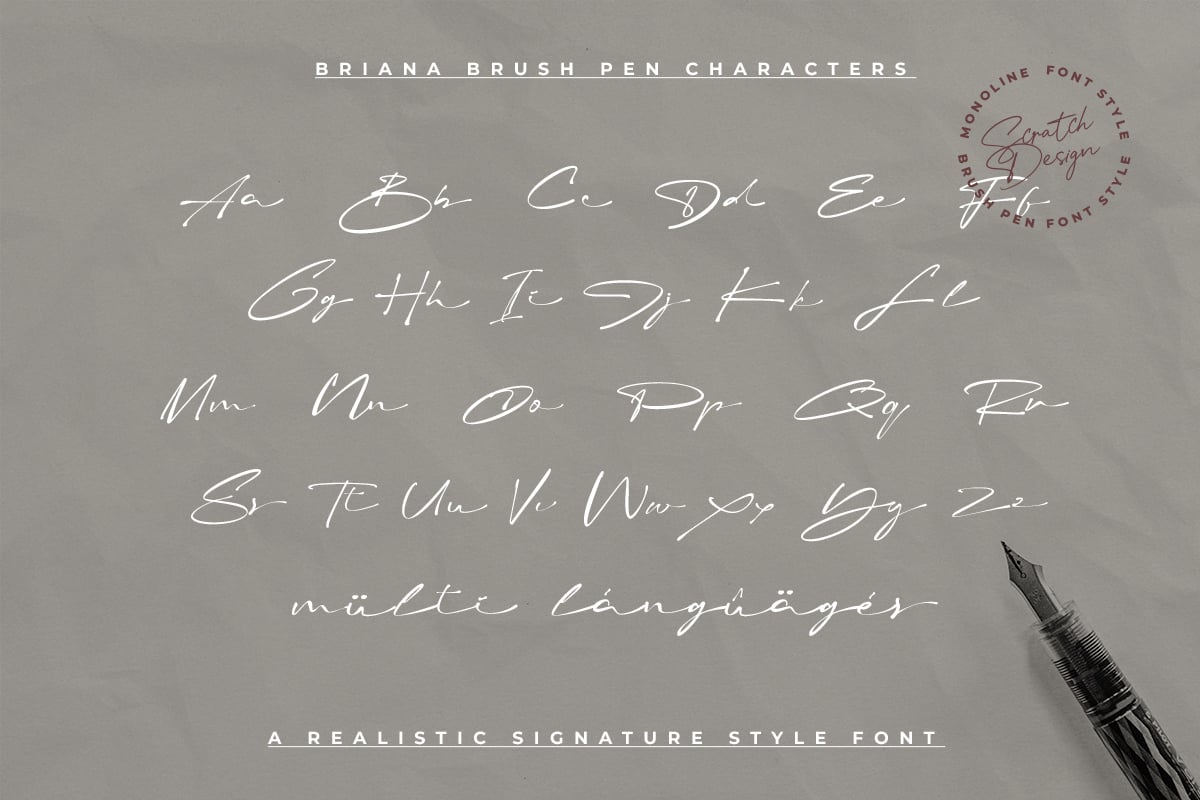 BRIANA BRUSH PEN CHARACTERS
MONOLINE FONT STYLE
Scratch
Design
BRUSH PEN FONT STYLE
Aa Bb Cc Dd Ee Ff
Gg Hh Ii Jj Kk Ll
Mm Nn Oo Pp Qq Rr
Ss Tt Uu Vv Ww Xx Yy Zz
mülti lángûägés
A REALISTIC SIGNATURE STYLE FONT